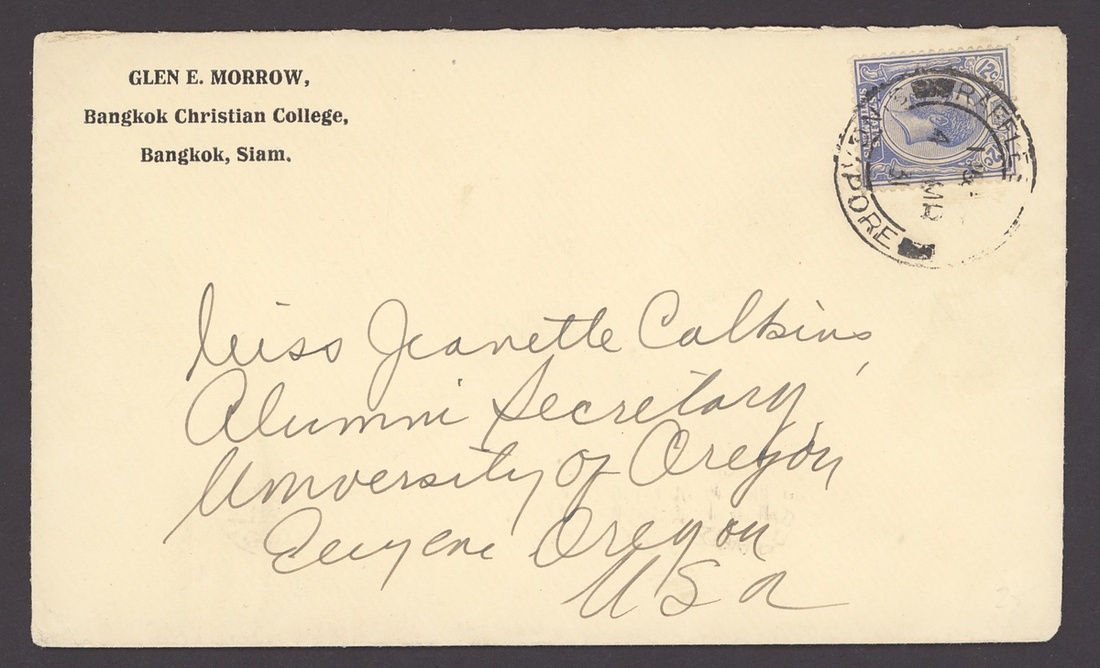 GLEN E. MORROW,
Bangkok Christian College,
Bangkok, Siam.
12c
12c
RAFFLES
4 MR
31
Miss Jeanette Calkins,
Alumni Secretary,
University of Oregon,
Eugene Oregon
USA